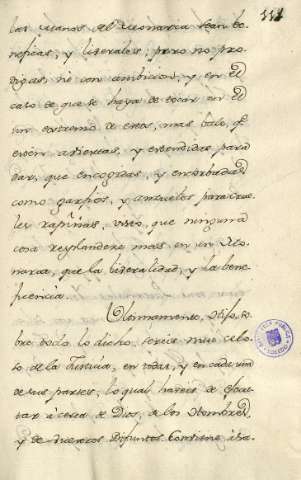 111
las manos del Monarca sean be-
neficas, y liberales; pero no pro-
digas, ni con ambicion, y en el
caso de que se haya de tocar en el
un extremo de estos, mas vale, q.e
esten abiertas, y estendidas para
dar, que encogidas, y encorbadas
como garfios, y anzuelos para crue-
les rapiñas, visto, que ninguna
cosa resplandece mas en un Mo-
narca, que la liveralidad, y la bene-
ficencia.
Ultimamente, Hijo, so-
bre todo lo dicho, sereis muy celo-
so de la Justicia, en todas, y en cada una
de sus partes, lo qual haveis de
tar acerca de Dios, de los Hombres,
y de nuestros Difuntos. Contiene